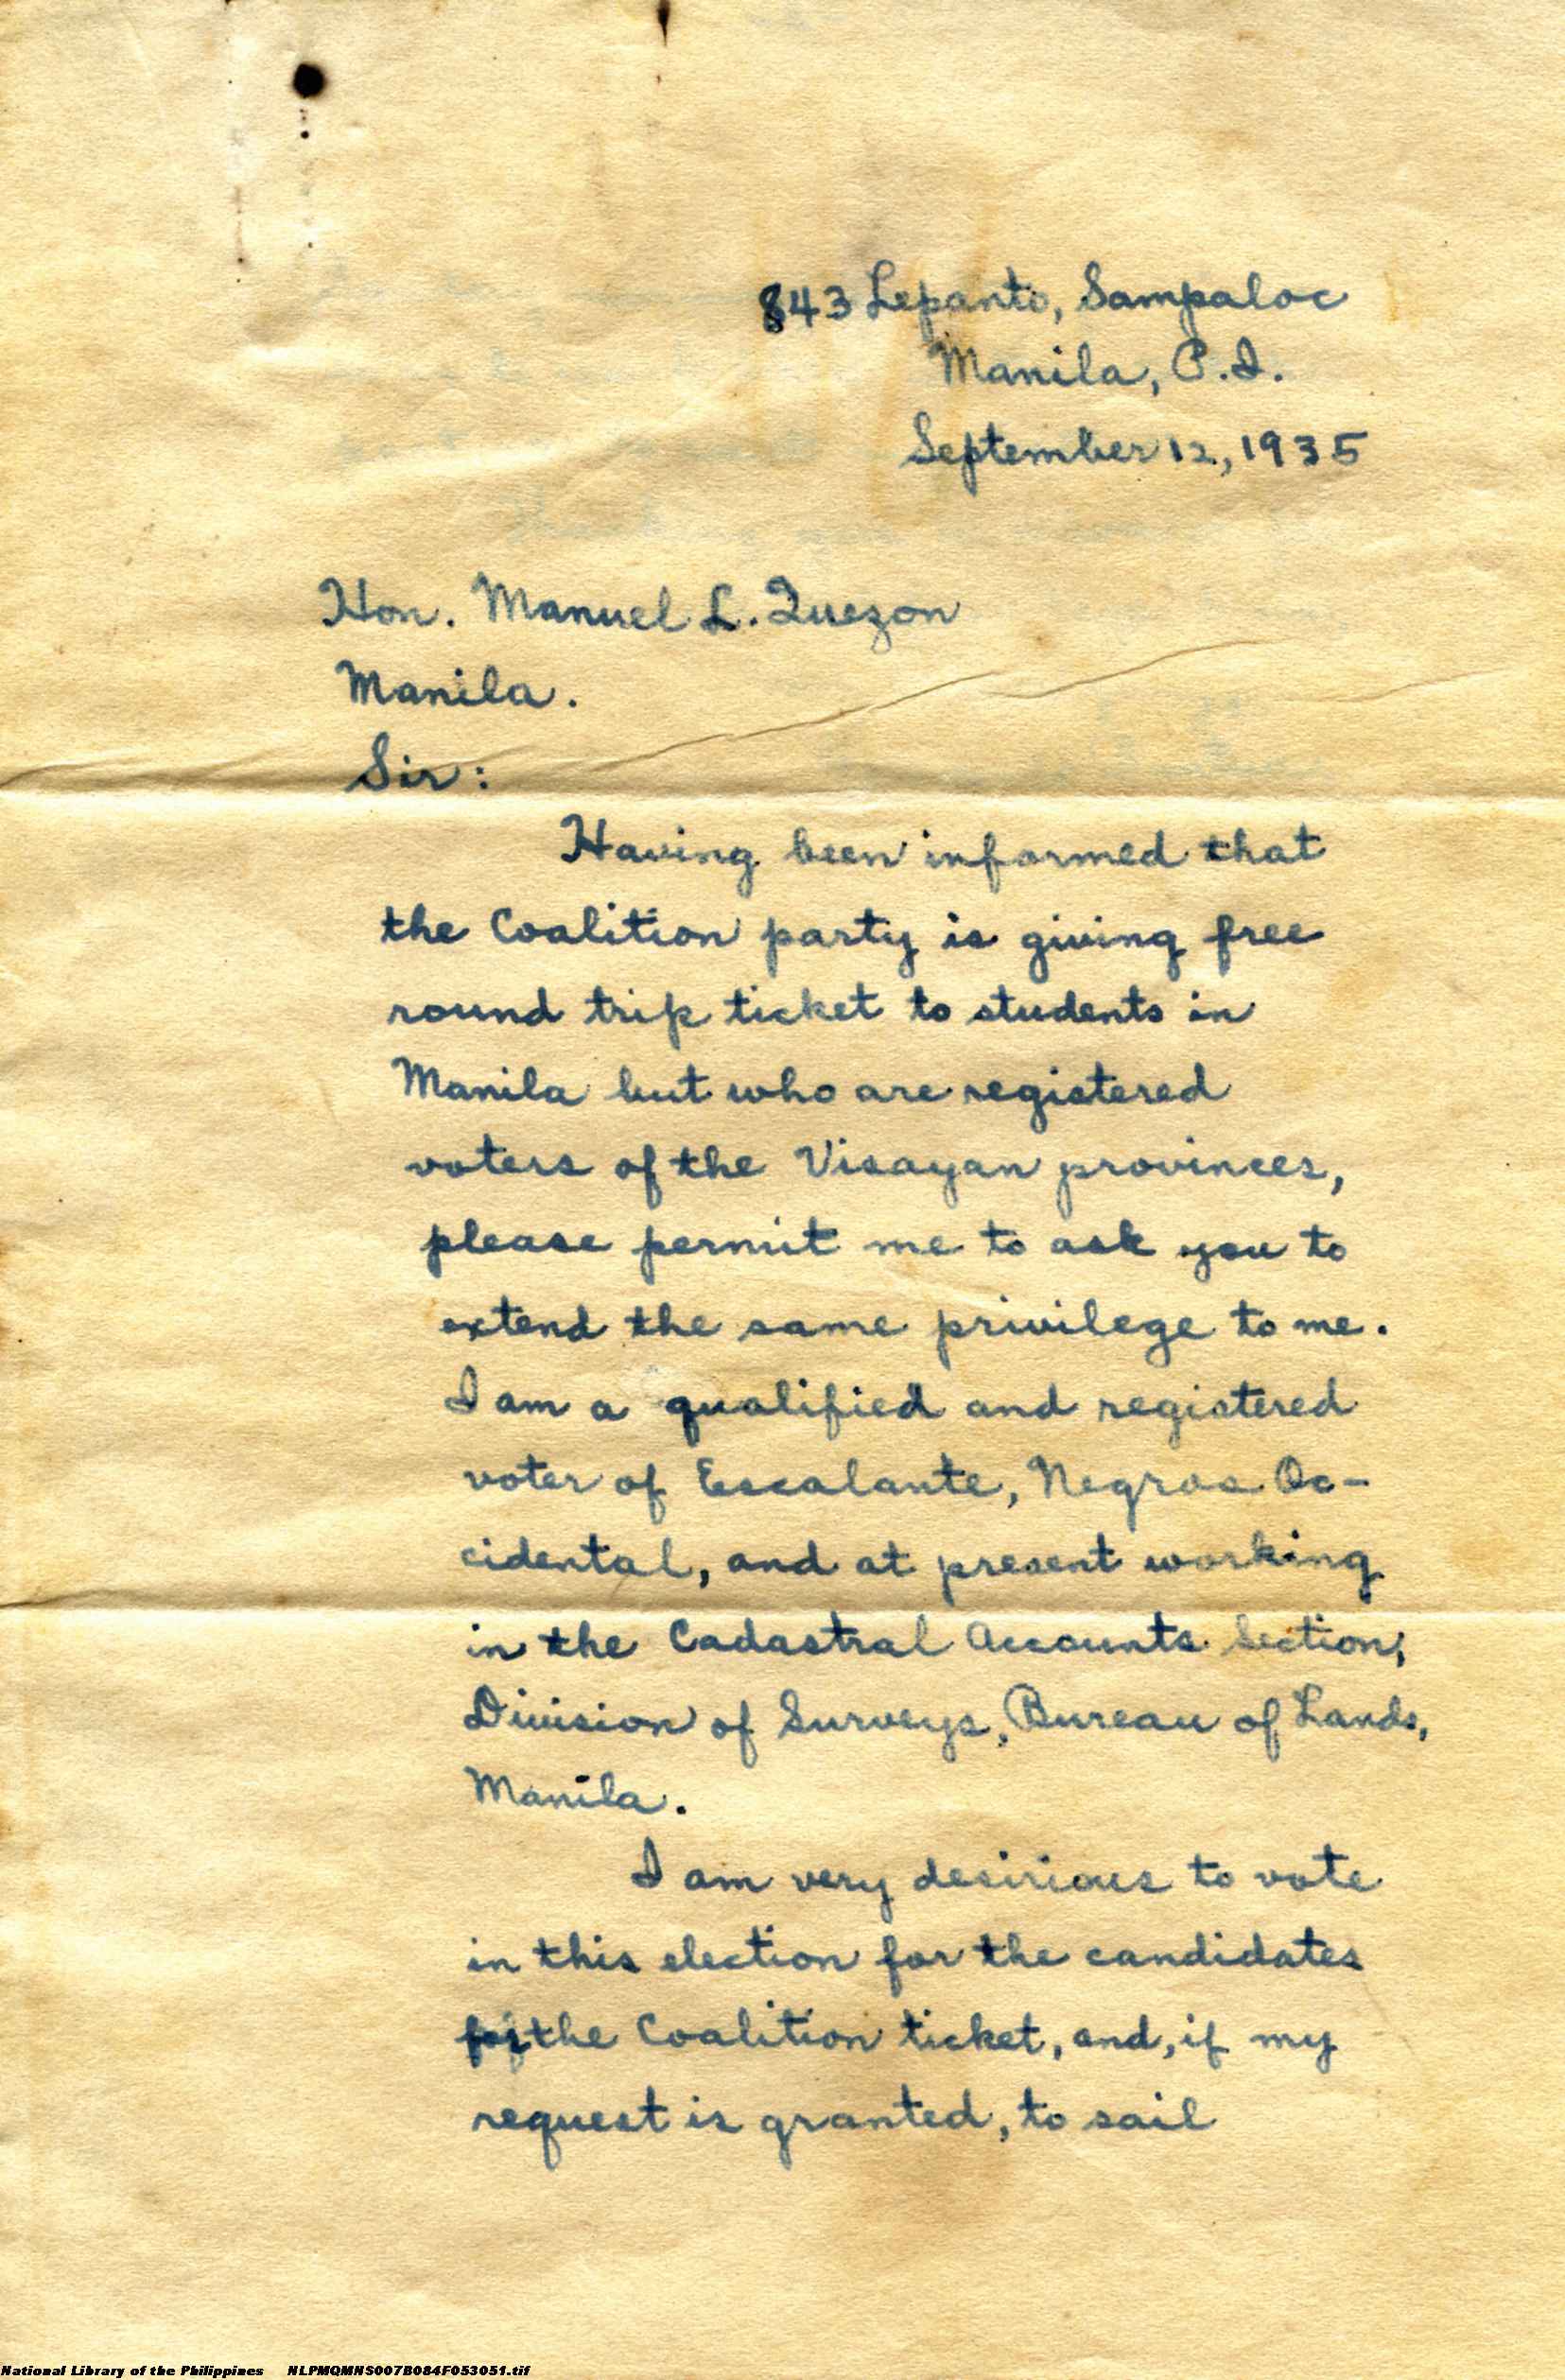 843 Lepanto, Sampaloc
Manila, P.I.
September 12, 1935
Hon. Manuel L. Quezon
Manila.
Sir:
Having been informed that
the Coalition party is giving free
round trip ticket to students in
Manila but who are registered
voters of the Visayan provinces,
please permit me to ask you to
extend the same privilege to me.
I am a qualified and registered
voter of Escalante, Negros Oc-
cidental, and at present working
in the Cadastral Accounts Section,
Division of Surveys, Bureau of Lands,
Manila.
I am very desirious to vote
in this election for the candidates
the Coalition ticket, and, if my
request is granted, to sail
National Library of the Philippines NLPMQMNS007B084F053051.tif